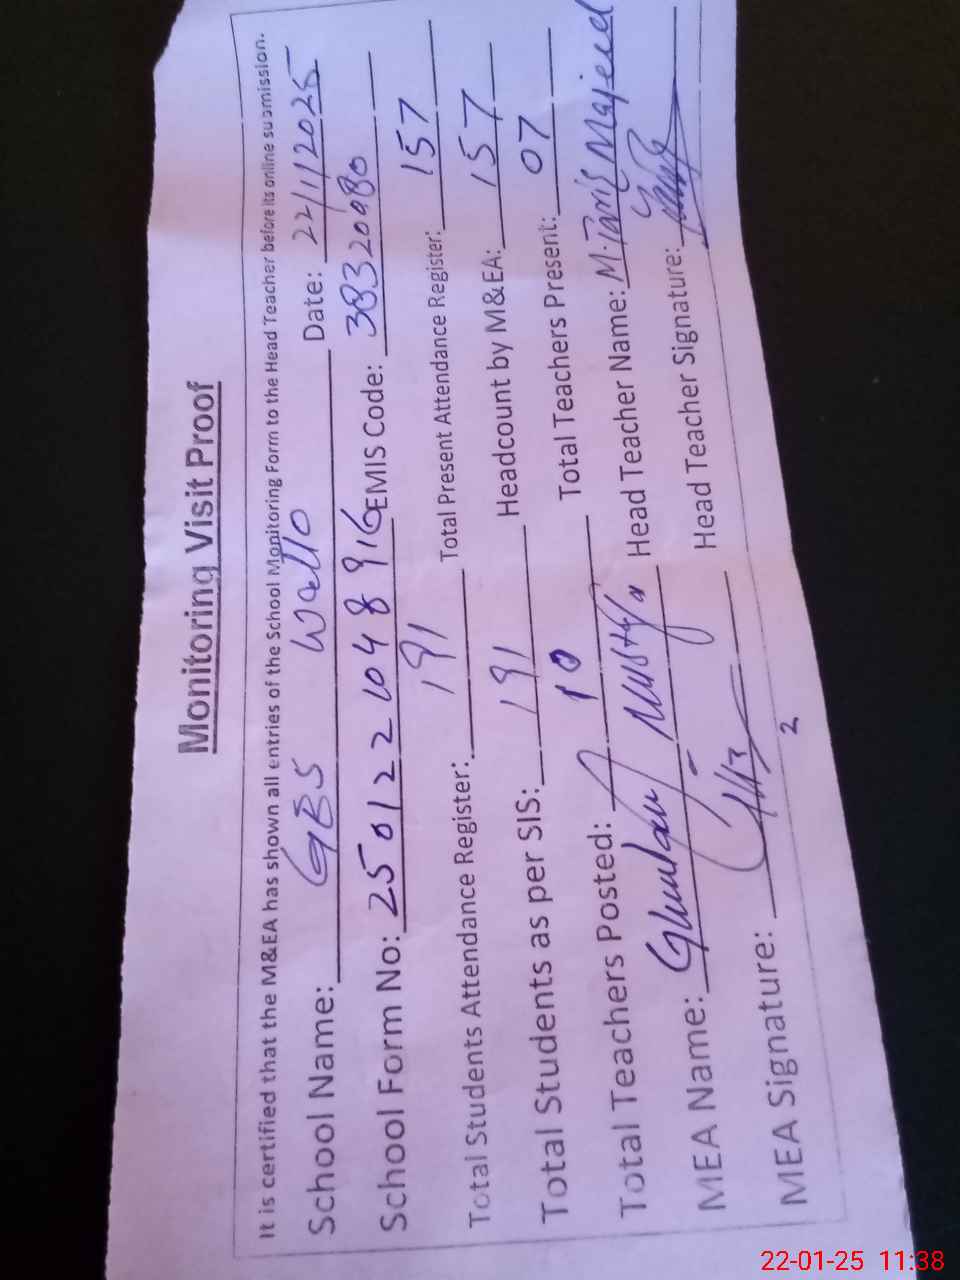 Monitoring Visit Proof
It is certified that the M&EA has shown all entries of the School Monitoring Form to the Head Teacher before its online submission.
School Name: GBS Wallo Date: 22/1/2025
School Form No: 2501221048916 EMIS Code: 38320980
Total Students Attendance Register: 191 Total Present Attendance Register: 157
Total Students as per SIS: 191 Headcount by M&EA: 157
Total Teachers Posted: 10 Total Teachers Present: 07
MEA Name: Ghulam Mustafa Head Teacher Name: M. Majeed
MEA Signature: Head Teacher Signature:
2
22-01-25 11:38